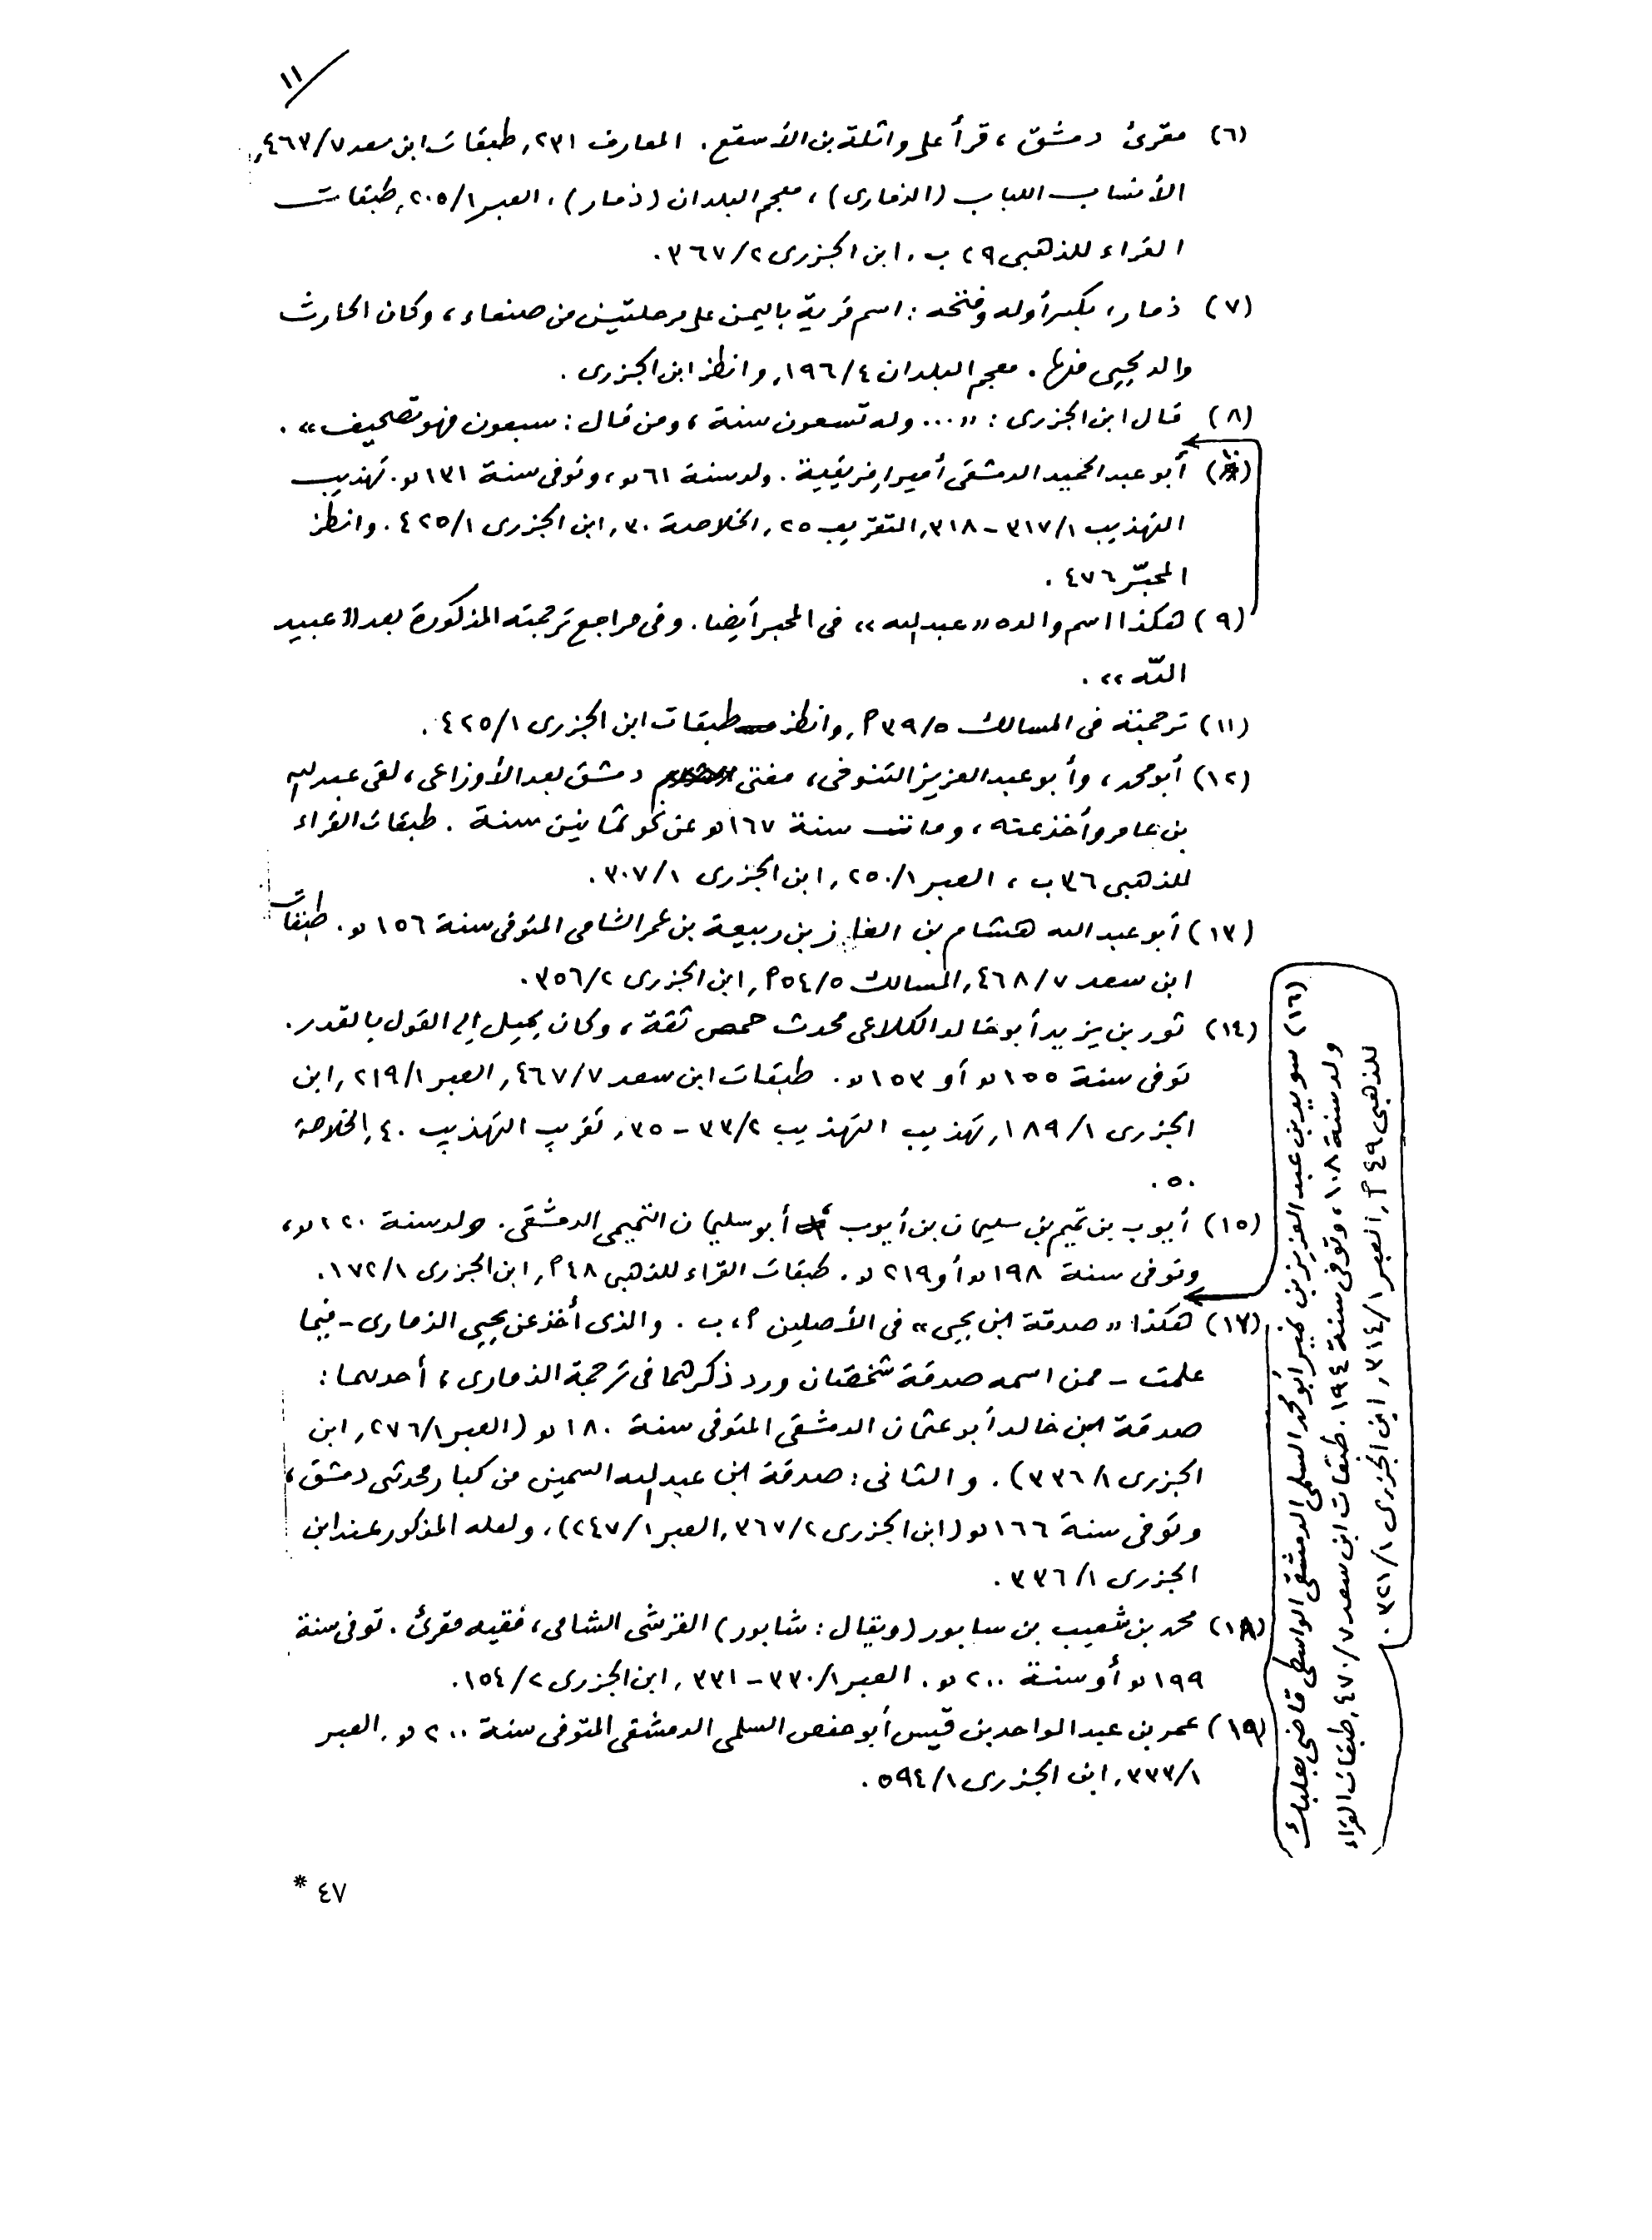 ١١
(٦) مقرئ دمشق ، قرأ على واثلة بن الأسقع . المعارف ٢٣١, طبقات ابن سعد ٧/ ٤٦٣,
الأنساب اللباب (الذمارى) ، معجم البلدان (ذمار) ، العبر ١/ ٢٠٥, طبقات
القراء للذهبى ٢٩ ب , ابن الجزرى ٢/ ٣٦٧ .
(٧) ذمار ، بكسر أوله وفتحه : اسم قرية باليمن على مرحلتين من صنعاء ، وكان الحارث
والد يحيى منها . معجم البلدان ٤/ ١٩٦, وانظر ابن الجزرى .
(٨) قال ابن الجزرى : « ... وله تسعون سنة ، ومن قال : سبعون فهو تصحيف » .
(١٠) أبو عبد الحميد الدمشقى أمير إفريقية . ولد سنة ٦١ هـ ، وتوفى سنة ١٣١ هـ . تهذيب
التهذيب ١/ ٣١٧ - ٣١٨, التقريب ٢٥ , الخلاصة ٣٠, ابن الجزرى ١/ ٤٢٥ . وانظر
المحبّر ٤٧٦ .
(٩) هكذا اسم والده « عبد الله » فى المحبر أيضا . وفى مراجع ترجمته المذكورة بعد « عبيد
اللّه » .
(١١) ترجمته فى المسالك ٥/ ٣٩ أ, وانظر طبقات ابن الجزرى ١/ ٤٢٥ .
(١٢) أبو محمد ، وأبو عبد العزيز التنوخى ، مفتى دمشق بعد الأوزاعى ، لقى عبد الله
بن عامر وأخذ عنه ، ومات سنة ١٦٧ هـ عن نحو ثمانين سنة . طبقات القراء
للذهبى ٣٦ ب ، العبر ١/ ٢٥٠, ابن الجزرى ١/ ٣٠٧ .
(١٣) أبو عبد الله هشام بن الغاز بن ربيعة بن عمر الشامى المتوفى سنة ١٥٦ هـ . طبقات
ابن سعد ٧/ ٤٦٨, المسالك ٥/ ٥٤ أ, ابن الجزرى ٢/ ٣٥٦ .
(١٤) ثور بن يزيد أبو خالد الكلاعى محدث حمص ثقة ، وكان يميل إلى القول بالقدر .
توفى سنة ١٥٥ هـ أو ١٥٣ هـ . طبقات ابن سعد ٧/ ٤٦٧, العبر ١/ ٢١٩, ابن
الجزرى ١/ ١٨٩, تهذيب التهذيب ٢/ ٣٣ - ٣٥, تقريب التهذيب ٤٠, الخلاصة
٥٠ .
(١٥) أيوب بن تميم بن سليمان بن أيوب ، أبو سليمان التميمى الدمشقى . ولد سنة ١٢٠ هـ ،
وتوفى سنة ١٩٨ هـ أو ٢١٩ هـ . طبقات القراء للذهبى ٤٨ أ, ابن الجزرى ١/ ١٧٢ .
(١٦) سويد بن عبد العزيز بن نمير أبو محمد السلمى الدمشقى الواسطى قاضى بعلبك
ولد سنة ١٠٨ ، وتوفى سنة ١٩٤ . طبقات ابن سعد ٧/ ٤٧٠, طبقات القراء
للذهبى ٤٩ أ, العبر ١/ ٣١٤, ابن الجزرى ١/ ٣٢١ .
(١٧) هكذا « صدقة ابن يحيى » فى الأصلين أ ، ب . والذى أخذ عن يحيى الذمارى - فيما
علمت - ممن اسمه صدقة شخصان ورد ذكرهما فى ترجمة الذمارى ، أحدهما :
صدقة ابن خالد أبو عثمان الدمشقى المتوفى سنة ١٨٠ هـ (العبر ١/ ٢٧٦, ابن
الجزرى ١/ ٣٣٦) . والثانى : صدقة ابن عبد الله السمين من كبار محدثى دمشق ،
وتوفى سنة ١٦٦ هـ (ابن الجزرى ٢/ ٣٦٧, العبر ١/ ٢٤٧) ، ولعله المذكور عند ابن
الجزرى ١/ ٣٣٦ .
(١٨) محمد بن شعيب بن سابور (ويقال : شابور) القرشى الشامى ، فقيه مقرئ . توفى سنة
١٩٩ هـ أو سنة ٢٠٠ هـ . العبر ١/ ٣٣٠ - ٣٣١ , ابن الجزرى ٢/ ١٥٤ .
(١٩) عمر بن عبد الواحد بن قيس أبو حفص السلمى الدمشقى المتوفى سنة ٢٠٠ هـ , العبر
١/ ٣٣٣, ابن الجزرى ١/ ٥٩٤ .
* ٤٧